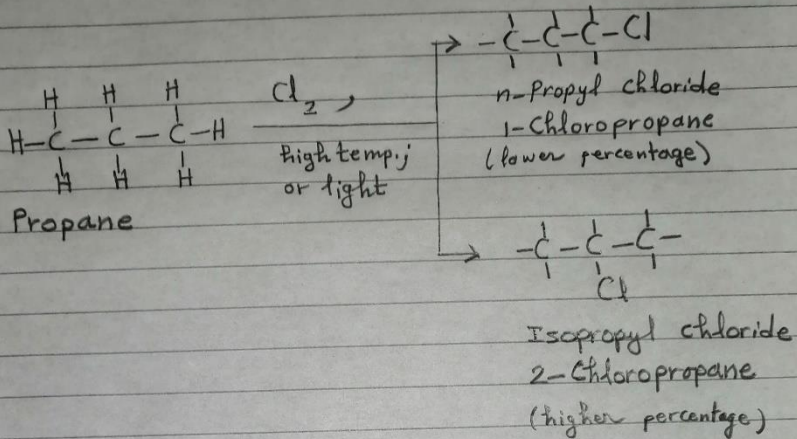 H H H
H-C-C-C-H
H H H
Propane
Cl2,
high temp.;
or light
-C-C-C-Cl
n-Propyl chloride
1-Chloropropane
(lower percentage)
-C-C-C-
Cl
Isopropyl chloride
2-Chloropropane
(higher percentage)